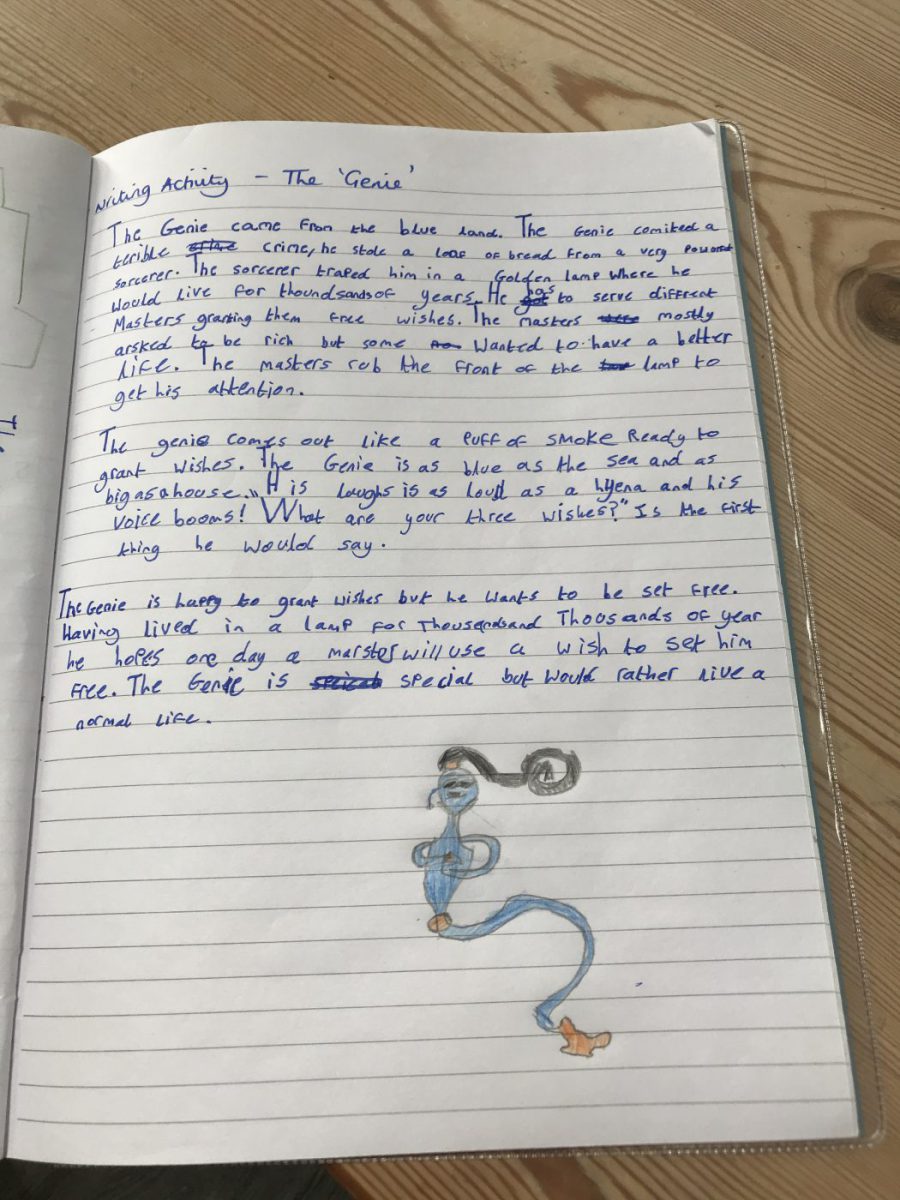 Writing Activity - The 'Genie'
The Genie came from the blue land. The Genie comited a
terrible crime, he stole a loaf of bread from a very powerful
sorcerer. The sorcerer traped him in a Golden lamp where he
would live for thoundsands of years. He has to serve different
Masters granting them free wishes. The masters mostly
arsked to be rich but some wanted to have a better
life. The masters rub the front of the lamp to
get his attention.
The genie comes out like a puff of smoke Ready to
grant wishes. The Genie is as blue as the sea and as
big as a house. His laughs is as loud as a hyena and his
voice booms! "What are your three wishes?" Is the first
thing he would say.
The Genie is happy to grant wishes but he wants to be set free.
Having lived in a lamp for thousands and Thoosands of year
he hopes one day a marster will use a wish to set him
free. The Genie is special but would rather live a
normal life.